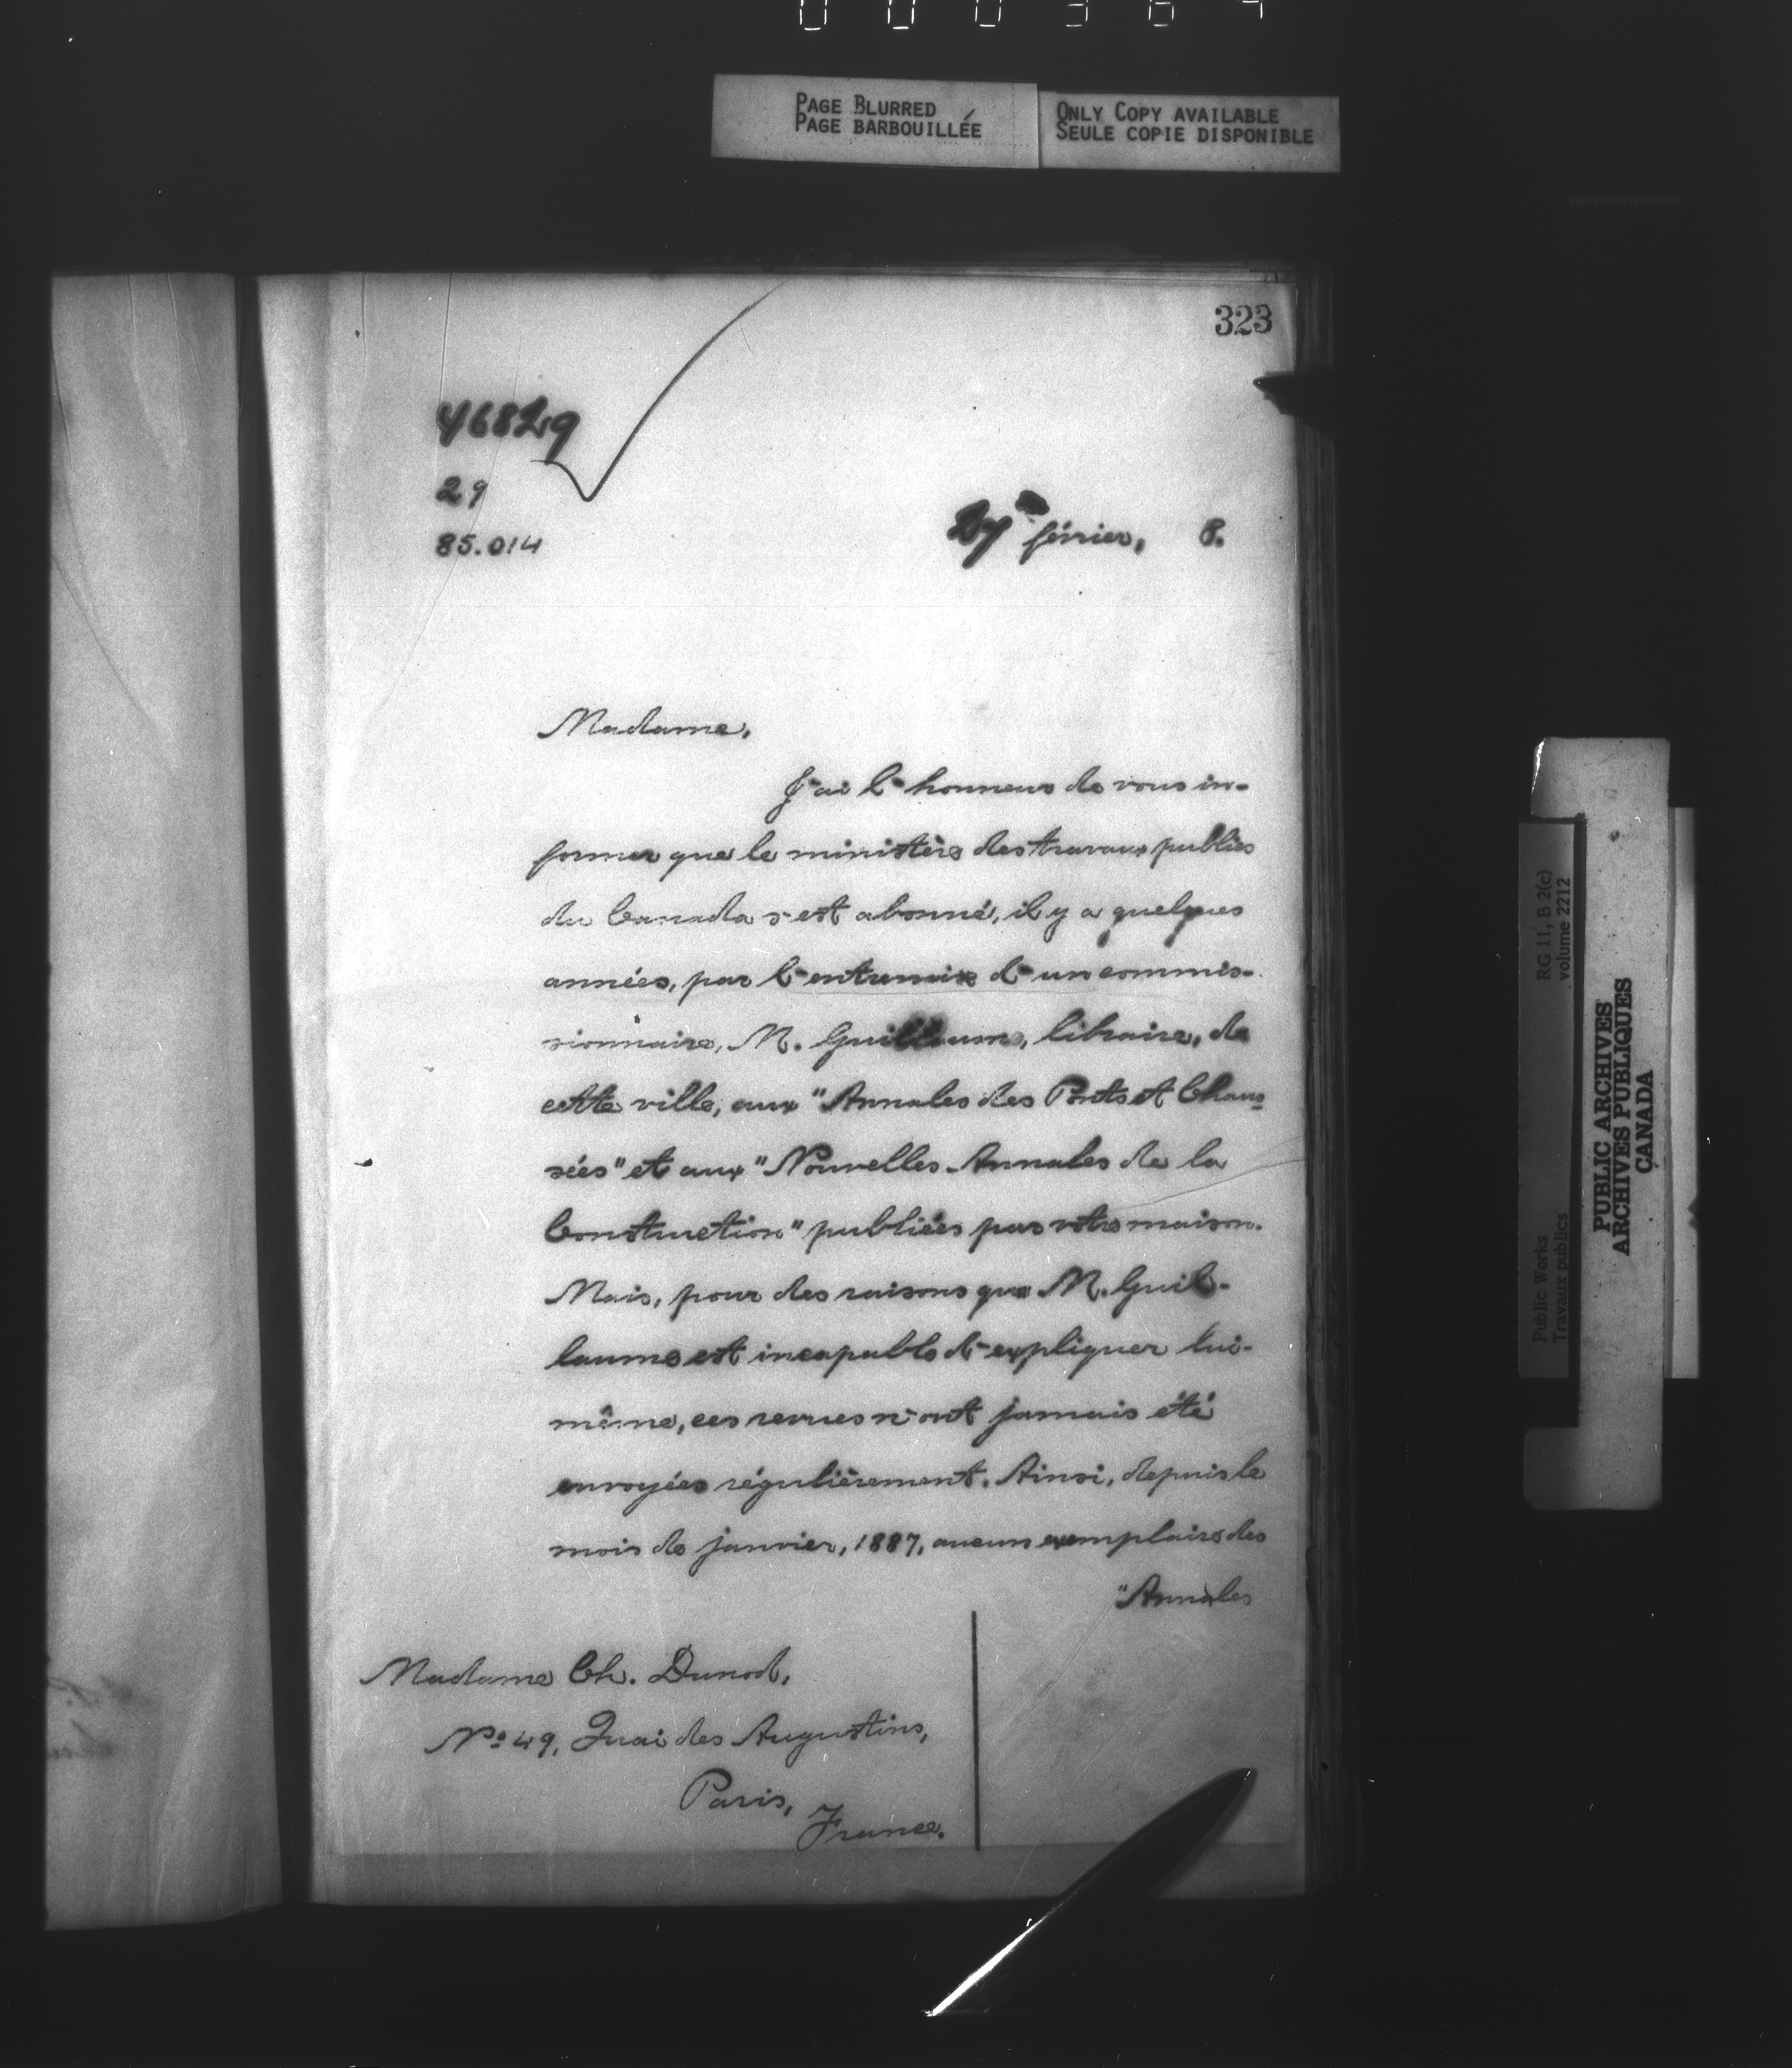 PAGE BLURRED
PAGE BARBOUILLÉE
ONLY COPY AVAILABLE
SEULE COPIE DISPONIBLE
323
46829
29
85.014
27 février, 8.
Madame,
J'ai l'honneur de vous in-
former que le ministère des travaux publics
du Canada s'est abonné, il y a quelques
années, par l'entremise d'un commis-
sionnaire, M. Guillaume, libraire, de
cette ville, aux "Annales des Ponts et Chaus-
sées" et aux "Nouvelles Annales de la
Construction" publiées par votre maison.
Mais, pour des raisons que M. Guil-
laume est incapable d'expliquer lui-
même, ces revues n'ont jamais été
envoyées régulièrement. Ainsi, depuis le
mois de janvier, 1887, aucun exemplaire des
"Annales
Madame Ch. Dunod,
No 49, Quai des Augustins,
Paris,
France.
RG 11, B 2(c)
volume 2212
Public Works
Travaux publics
PUBLIC ARCHIVES
ARCHIVES PUBLIQUES
CANADA